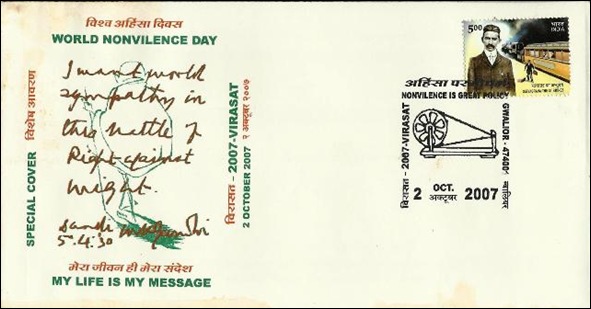 विश्व अहिंसा दिवस
WORLD NONVILENCE DAY
SPECIAL COVER विशेष आवरण
I want world
sympathy in
this battle of
Right against
might.
Sandi MKGandhi
5.4.30
मेरा जीवन ही मेरा संदेश
MY LIFE IS MY MESSAGE
विरासत - 2007-VIRASAT
2 OCTOBER 2007 २ अक्टूबर २००७
5.00
भारत
INDIA
अहिंसा
NONVILENCE IS GREAT POLICY
विरासत - 2007-VIRASAT
GWALIOR - 474001 ग्वालियर
2 OCT. अक्टूबर 2007